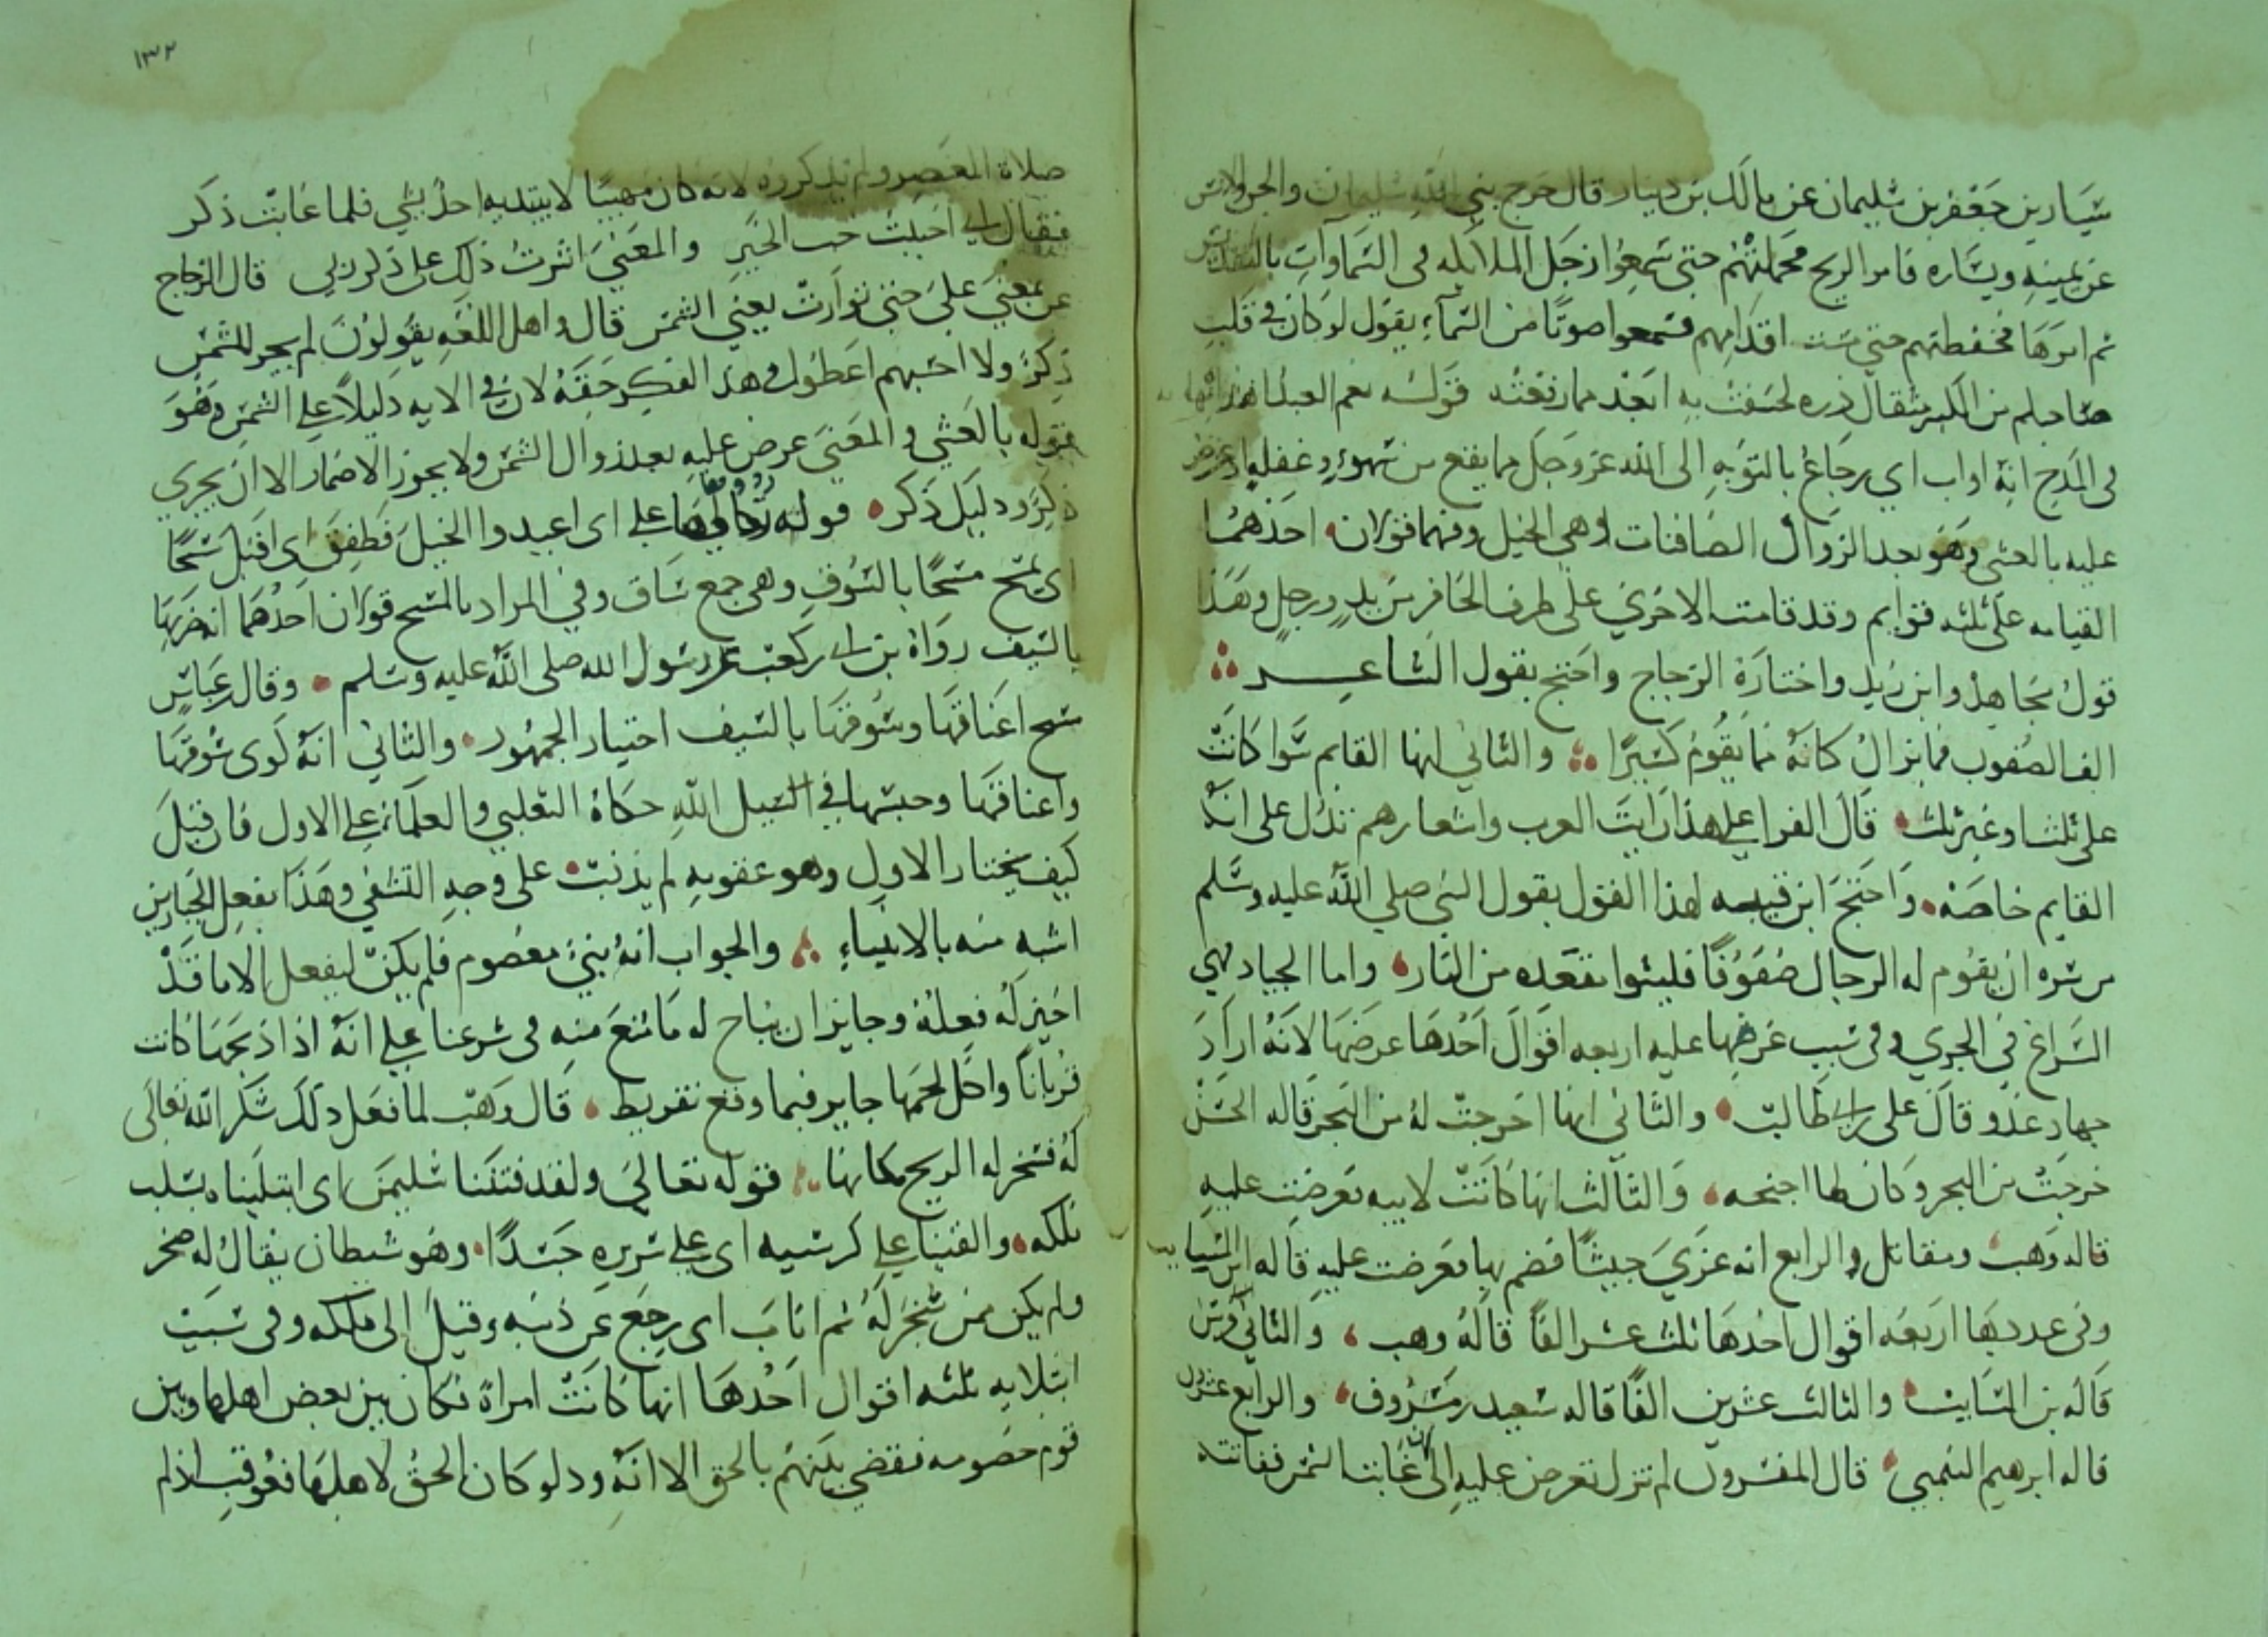 سيار بن جعفر بن سليمان عن مالك بن دينار قال خرج نبي الله سليمان والجن والانس
عن يمينه ويساره فامر الريح فحملتهم حتى سمعوا زجل الملائكه في السماوات بالتقديس
ثم امرها فخفضتهم حتى مست اقدامهم فسمعوا صوتا من السماء يقول لو كان في قلب
صاحبكم من الكبر مثقال ذره لخسفت به ابعد مما رفعته قوله نعم العبد
في المدح انه اواب اي رجاع بالتوبه الى الله عز وجل مما يقع من سهو وغفله اذ عرض
عليه بالعشي وهو بعد الزوال الصافنات وهي الخيل وفيها قولان احدهما
القيامه على ثلثه قوايم وقد قامت الاخرى على طرف الحافر من يد ورجل وهذا
قول مجاهد وابن زيد واختاره الزجاج واحتج بقول الشاعر
الف الصفوب فما يزال كانه مما يقوم كسيرا والثاني انها القايم سوا كانت
على ثلث او غير ثلث قال الفرا على هذا رايت العرب واشعارهم تدل على انه
القايم خاصه واحتج ابن قتيبه لهذا القول بقول النبي صلى الله عليه وسلم
من سره ان يقوم له الرجال صفوفا فليتبوا مقعده من النار واما الجياد فهي
السراع في الجري وفي سبب عرضها عليه اربعه اقوال احدها عرضها لانه اراد
جهاد عدو قال على بن ابي طالب والثاني انها اخرجت له من البحر قاله الحسن
خرجت من البحر وكان لها اجنحه والثالث انها كانت لابيه فعرضت عليه
قاله وهب ومقاتل والرابع انه غزى جيشا فضم بها فعرضت عليه قاله ابن السايب
وفي عددها اربعه اقوال احدها ثلث عشر الفا قاله وهب والثاني
قاله بن السايب والثالث عشرين الفا قاله سعيد بن مسروق والرابع عشرون
قاله ابرهيم التيمي قال المفسرون لم تزل تعرض عليه الى ان غابت الشمس ففاتته
١٣٢
صلاة العصر ولم يذكروه لانه كان مهيبا لا يبتديه احد بشي فلما غابت ذكر
فقال اني احببت حب الخير والمعنى اثرت ذلك على ذكر ربي قال الزجاج
عن بمعنى على حتى توارت يعني الشمس قال واهل اللغه يقولون لم يجر للشمس
ذكر ولا احسبهم اعطوا في هذا الفكر حقه لان في الايه دليلا على الشمس وهو
قوله بالعشي والمعنى عرض عليه بعد زوال الشمس ولا يجوز الاضمار الا ان يجري
ذكر ودليل ذكر قوله ردوها على اي اعيدوا الخيل فطفق اي اقبل مسحا
اي يمسح مسحا بالسوق وهي جمع ساق وفي المراد بالمسح قولان احدهما انه ضربها
بالسيف رواه بن ابي بن كعب عن رسول الله صلى الله عليه وسلم وقال بن عباس
مسح اعناقها وسوقها بالسيف اختيار الجمهور والثاني انه كوى سوقها
واعناقها وحبسها في السبيل الله حكاه الثعلبي والعلماء على الاول فان قيل
كيف يختار الاول وهو عقوبه لم يذنب على وجه التشفي وهذا بفعل الجبارين
اشبه منه بالانبياء والجواب انه نبي معصوم فلم يكن ليفعل الا ما قد
اجيز له فعله وجايز ان يباح له ما منع منه في شرعنا على انه اذا ذبحها كانت
قربانا واكل لحمها جايز فما وقع تفريط قال وهب لما فعل ذلك شكر الله تعالى
له فسخر له الريح مكانها قوله تعالى ولقد فتنا سليمن اي ابتليناه بسلب
ملكه والقينا على كرسيه اي على سريره جسدا وهو شيطان يقال له صخر
ولم يكن ممن سخر له ثم اناب اي رجع عن ذنبه وقيل الى ملكه وفي سبب
ابتلايه ثلثه اقوال احدها انها كانت امراة فكان بين بعض اهلها وبين
قوم خصومه فقضي بينهم بالحق الا انه ود لو كان الحق لاهلها فعوقب اذ لم